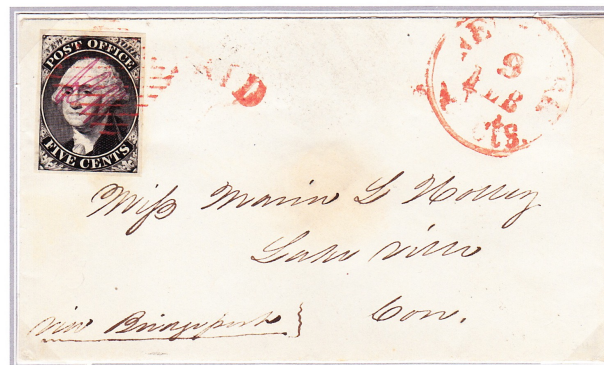 POST OFFICE
FIVE CENTS
PAID
NEW YORK
9
FEB
cts.
Miſs Maria G Holley
Lake ville
Con.
via Bridgeport